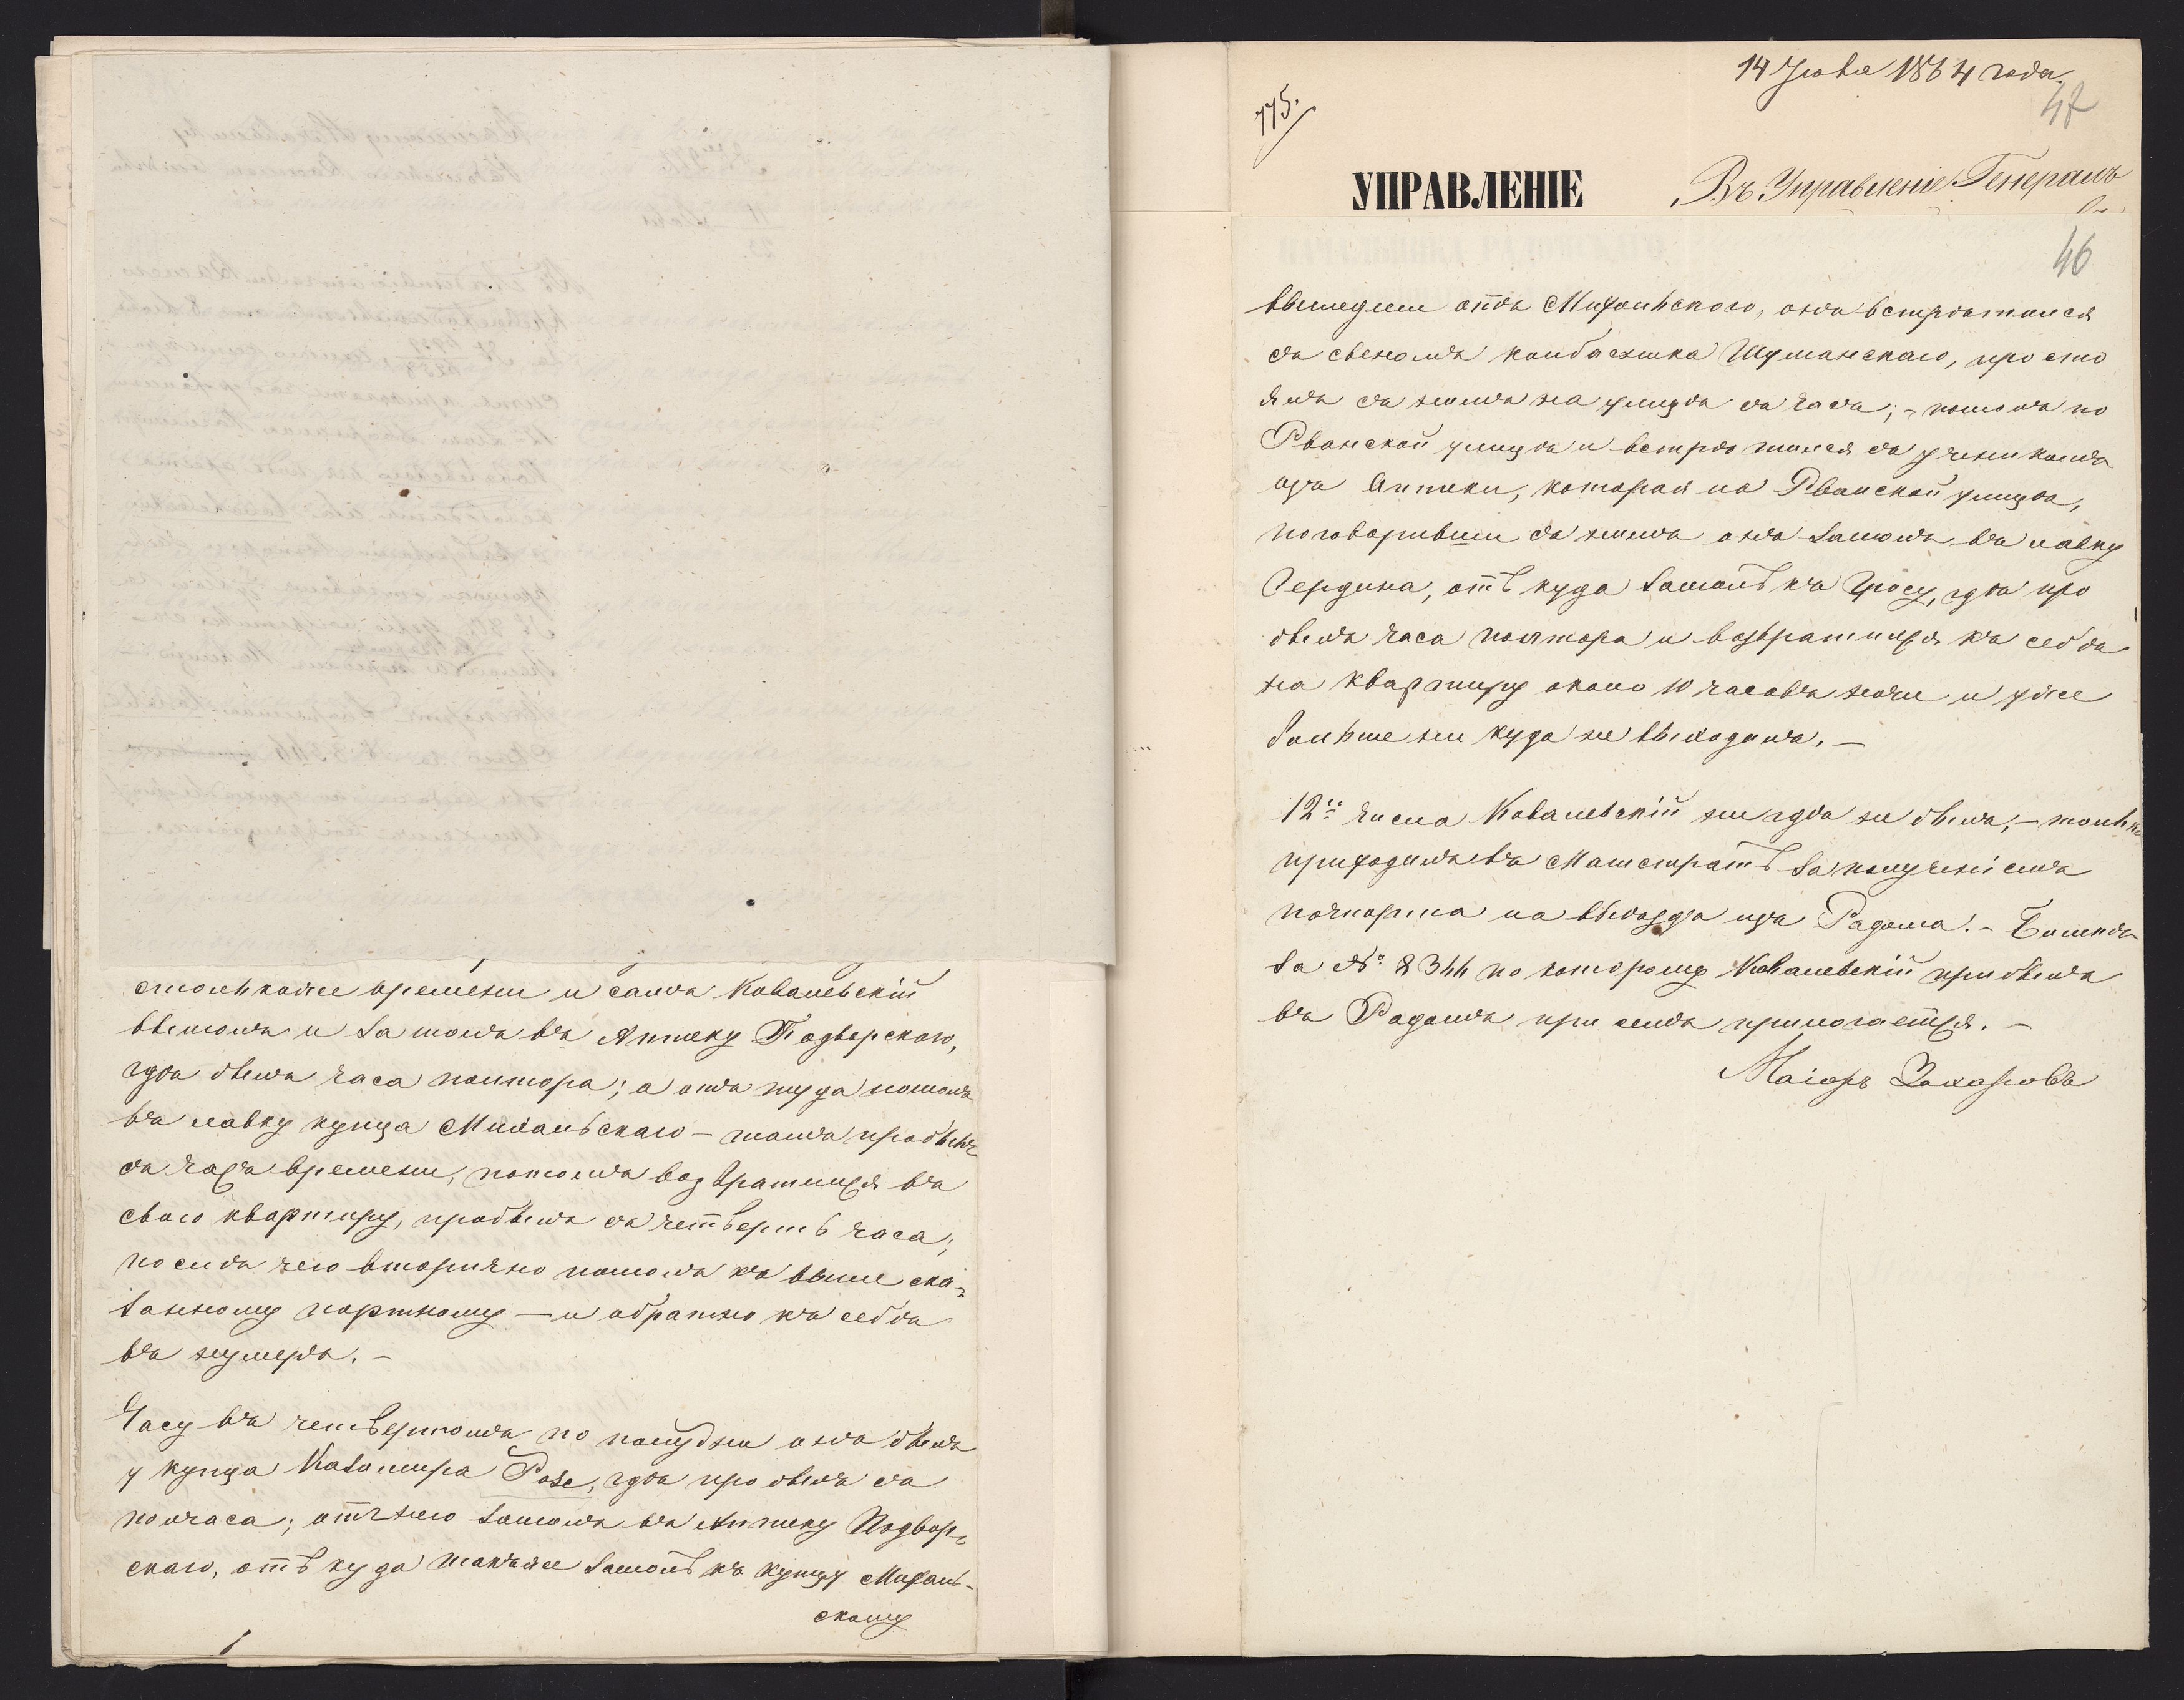 столькоже времени и самъ Ковалевскій
вышолъ и зашолъ въ Аптеку Подворского,
гдѣ былъ часа полтора; а отъ туда пошолъ
въ лавку купца Михальскаго – тамъ пробылъ
съ часъ времени, потомъ возвратился въ
свою квартиру, пробылъ съ четверть часа;
послѣ чего вторично пошолъ къ выше ска-
занному портному – и обратно къ себѣ
въ нумеръ. –
Часу въ четвертомъ по полудни онъ былъ
у купца Казимира Розе, гдѣ пробылъ съ
полчаса; отъ него зашолъ въ Аптеку Подвор-
скаго, отъ куда также зашолъ къ купцу Михаль-
скому
14 Июля 1864 года.
775.
47
УПРАВЛЕНІЕ
Въ Управленіе Генералъ
46
вышедши отъ Михальского, онъ встрѣтился
съ сыномъ колбасника Шуманскаго, просто
ялъ съ нимъ на улицѣ съ часъ; – пошолъ по
Рванской улицѣ и встрѣтился съ ученикомъ
изъ Аптеки, которая на Рванской улицѣ,
поговоривши съ нимъ онъ зашолъ въ лавку
Гердина, отъ куда зашолъ къ Гросу, гдѣ про
былъ часа полтора и возвратился къ себѣ
на квартиру около 10 часовъ ночи и уже
больше ни куда не выходилъ. –
12го числа Ковалевскій ни гдѣ не былъ, – только
приходилъ въ Магистратъ за полученіемъ
пачпорта на выѣздъ изъ Радома. – Билетъ
за № 8344 по которому Ковалевскій прибылъ
въ Радомъ при семъ прилогается. –
Маіоръ Захаровъ